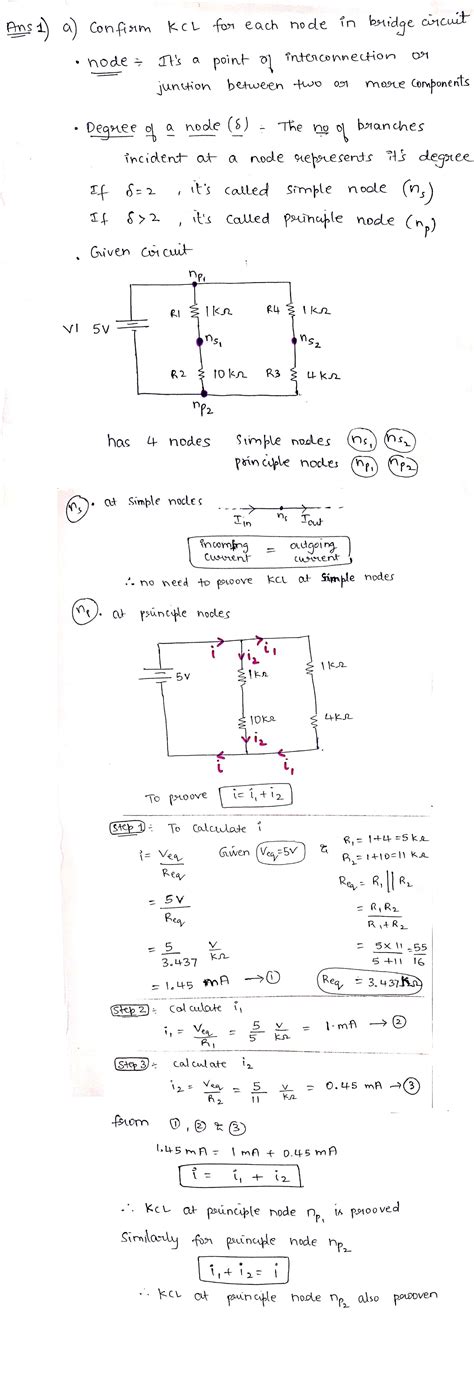 Ans 1) a) Confirm KCL for each node in bridge circuit
• node ÷ It's a point of interconnection or
junction between two or more components
• Degree of a node (δ) - The no of branches
incident at a node represents it's degree
If δ=2 , it's called simple node (ns)
If δ>2 , it's called principle node (np)
• Given circuit
np1
R1 1kΩ R4 1kΩ
V1 5V
ns1 ns2
R2 10kΩ R3 4kΩ
np2
has 4 nodes Simple nodes ns1 ns2
principle nodes np1 np2
ns • at Simple nodes
Iin ns Iout
incoming current = outgoing current
∴ no need to proove KCL at simple nodes
np • at principle nodes
i i1
i2
5V 1kΩ 1kΩ
10kΩ 4kΩ
i2
i i1
To proove i = i1 + i2
Step 1 : To Calculate i
i = Veq/Req Given Veq=5V & R1 = 1+4 = 5kΩ
R2 = 1+10 = 11 kΩ
= 5V/Req Req = R1 || R2
= R1R2/R1+R2
= 5/3.437 V/kΩ = 5×11/5+11 = 55/16
= 1.45 mA → 1 Req = 3.437kΩ
Step 2 : Calculate i1
i1 = Veq/R1 = 5/5 V/kΩ = 1·mA → 2
Step 3 : Calculate i2
i2 = Veq/R2 = 5/11 V/kΩ = 0.45 mA → 3
from 1, 2 & 3
1.45 mA = 1 mA + 0.45 mA
i = i1 + i2
∴ KCL at principle node np1 is prooved
Similarly for principle node np2
i1 + i2 = i
∴ KCL at principle node np2 also prooven